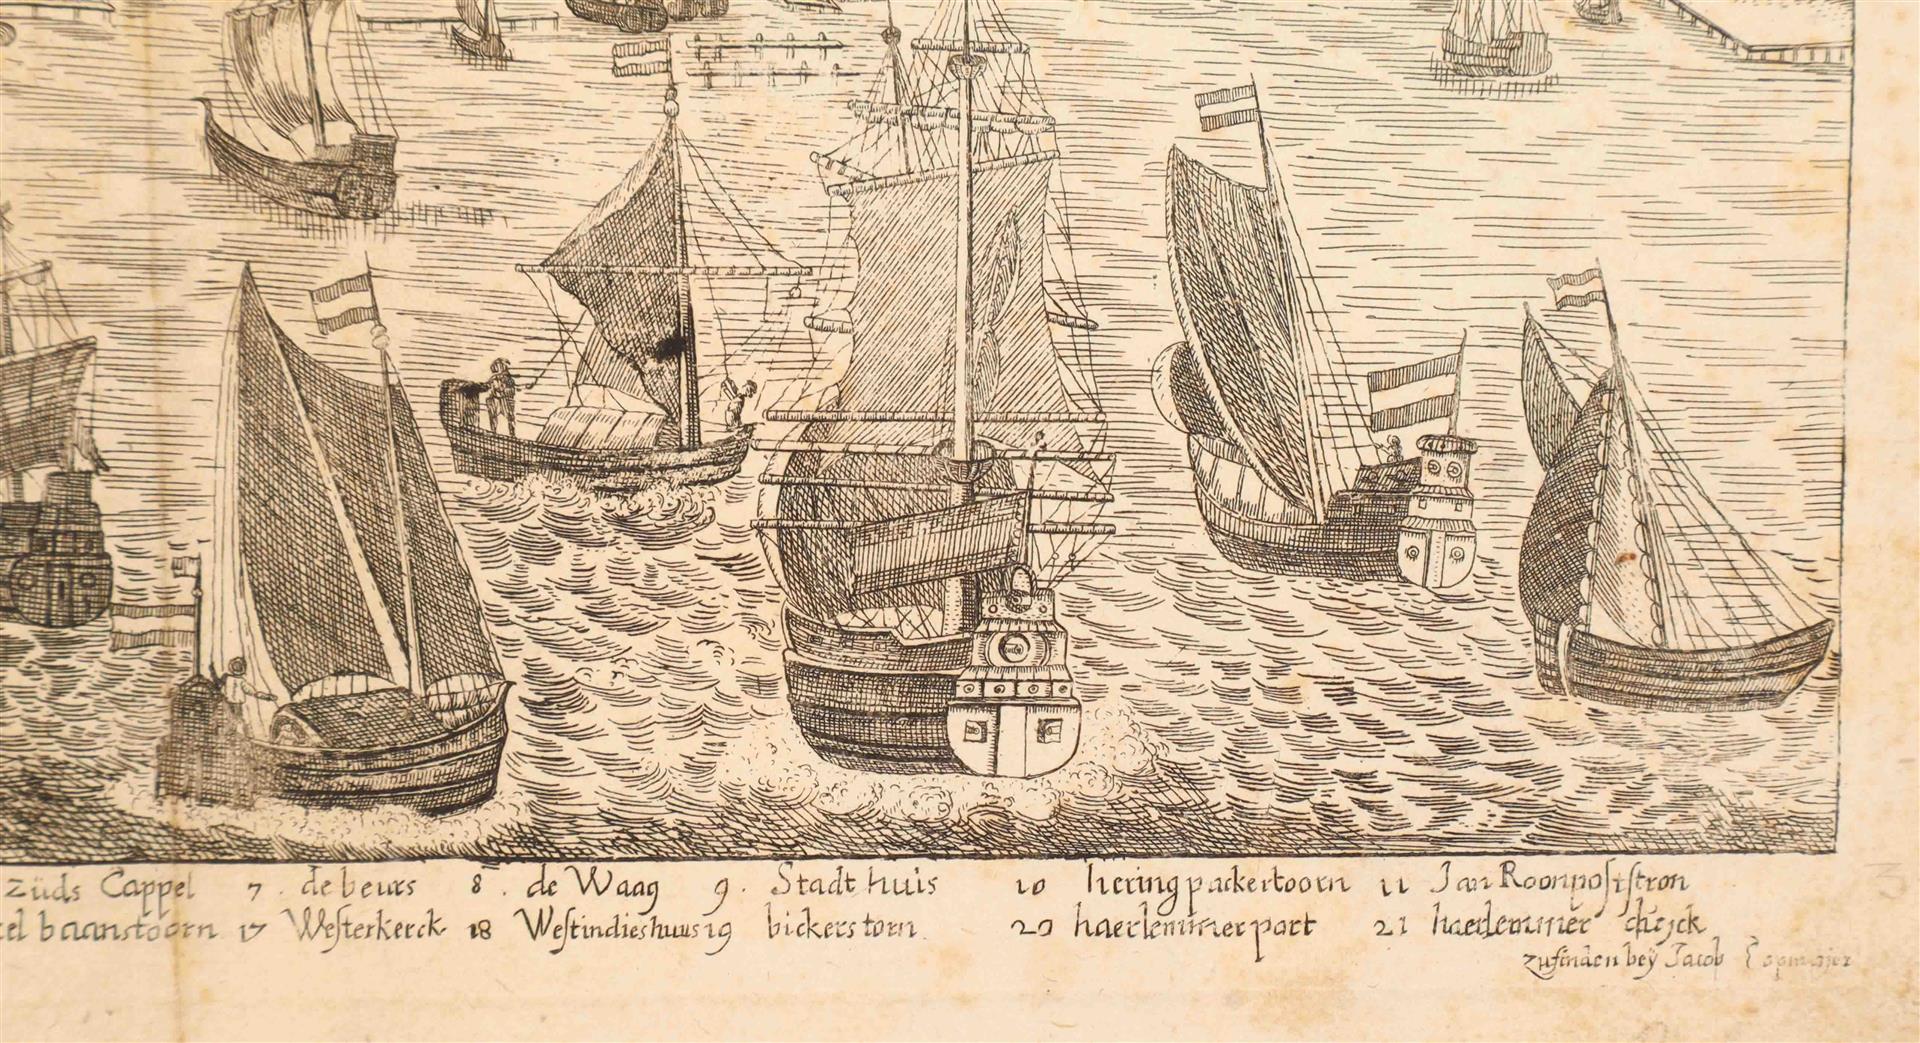 züds Cappel 7. de beurs 8. de Waag 9. Stadt huis 10 heringpackertoorn 11 Jan Roonpostſtron
el baanstoorn 17 Weſterkerck 18 Weſtindieshuus 19 bickers torn 20 haerlemmerport 21 haerlemmer
zufinden beÿ Jacob
3